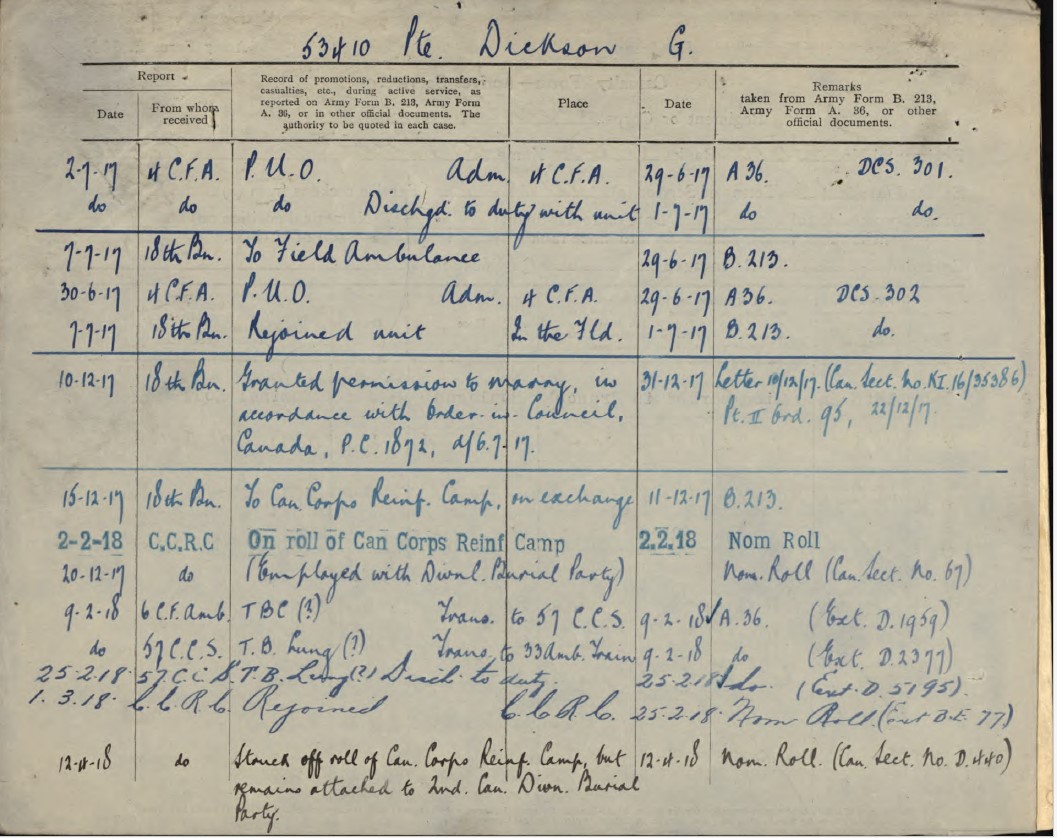 53410 Pte. Dickson G.
Report
Date
From whom
received
Record of promotions, reductions, transfers,
casualties, etc., during active service, as
reported on Army Form B. 213, Army Form
A. 36, or in other official documents. The
authority to be quoted in each case.
Place
Date
Remarks
taken from Army Form B. 213,
Army Form A. 36, or other
official documents.
2-7-17 4 C.F.A. P.U.O. Adm. 4 C.F.A. 29-6-17 A 36. DCS. 301.
do do do Dischgd. to duty with unit 1-7-17 do do.
7-7-17 18th Bn. To Field Ambulance 29-6-17 B.213.
30-6-17 4 C.F.A. P.U.O. Adm. 4 C.F.A. 29-6-17 A36. DCS. 302
7-7-17 18th Bn. Rejoined unit In the Fld. 1-7-17 B.213. do.
10-12-17 18th Bn. Granted permission to marry, in 31-12-17 Letter 10/12/17. (Can. Sect. No. KI.16/35386)
accordance with Order-in-Council, Pt. II Ord. 95, 22/12/17.
Canada, P.C. 1872, d/6.7-17.
15-12-17 18th Bn. To Can. Corps Reinf. Camp, on exchange 11-12-17 B.213.
2-2-18 C.C.R.C On roll of Can Corps Reinf Camp 2.2.18 Nom Roll
20-12-17 do (Employed with Divnl. Burial Party) Nom. Roll (Can. Sect. No. 67)
9-2-18 6 C.F. Amb. TBC (?) Trans. to 57 C.C.S. 9-2-18 A.36. (Ext. D.1959)
do 57 C.C.S. T.B. Lung (?) Trans. to 33 Amb. Train 9-2-18 do (Ext. D.2377)
25-2-18 57 C.C.S. T.B. Lung (?) Disch. to duty. 25-2-18 do. (Ext. D. 5195).
1.3.18. C.C.R.C. Rejoined C.C.R.C. 25-2-18. Nom Roll (Ext B.E. 77)
12-4-18 do Struck off roll of Can. Corps Reinf. Camp, but 12-4-18 Nom. Roll. (Can. Sect. No. D.440)
remains attached to 2nd. Can. Divn. Burial
Party.